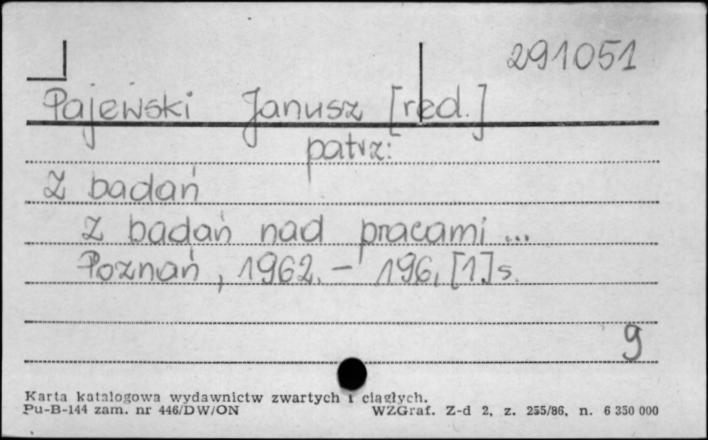 291051
Pajewski Janusz [red.]
patrz:
Z badań
Z badań nad pracami ...
Poznań, 1962. – 196, [1] s.
9
Karta katalogowa wydawnictw zwartych i ciągłych.
Pu-B-144 zam. nr 446/DW/ON WZGraf. Z-d 2, z. 255/86, n. 6 350 000